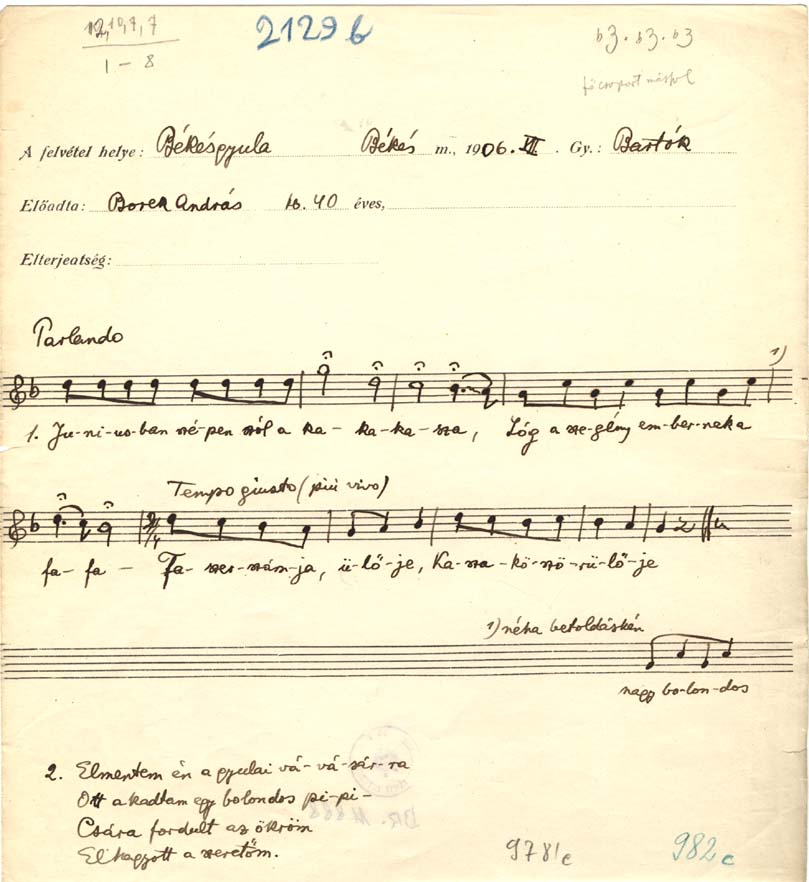 12, 10, 7, 7
1 - 8
2129 b
b3 . b3 . b3
főcsoport
A felvétel helye: Békésgyula Békés m., 1906. VII. Gy.: Bartók
Előadta: Borek András kb. 40 éves,
Elterjeatség:
Parlando
1. Ju-ni-us-ban szé-pen szól a ka- ka-ka-sza, Lóg a sze-gény em-ber-nek a
1)
Tempo giusto (più vivo)
fa- fa - Fa- szer-szám-ja, ü-lő-je, Ka-sza-kö-szö-rü-lő-je
1) néha betoldáskén
nagy bo-lon-dos
2. Elmentem én a gyulai vá- vá-sár-ra
Ott akadtam egy bolondos pi-pi-
Csára fordult az ökröm
Elhagyott a szeretőm.
BR. 
978/c
982 c